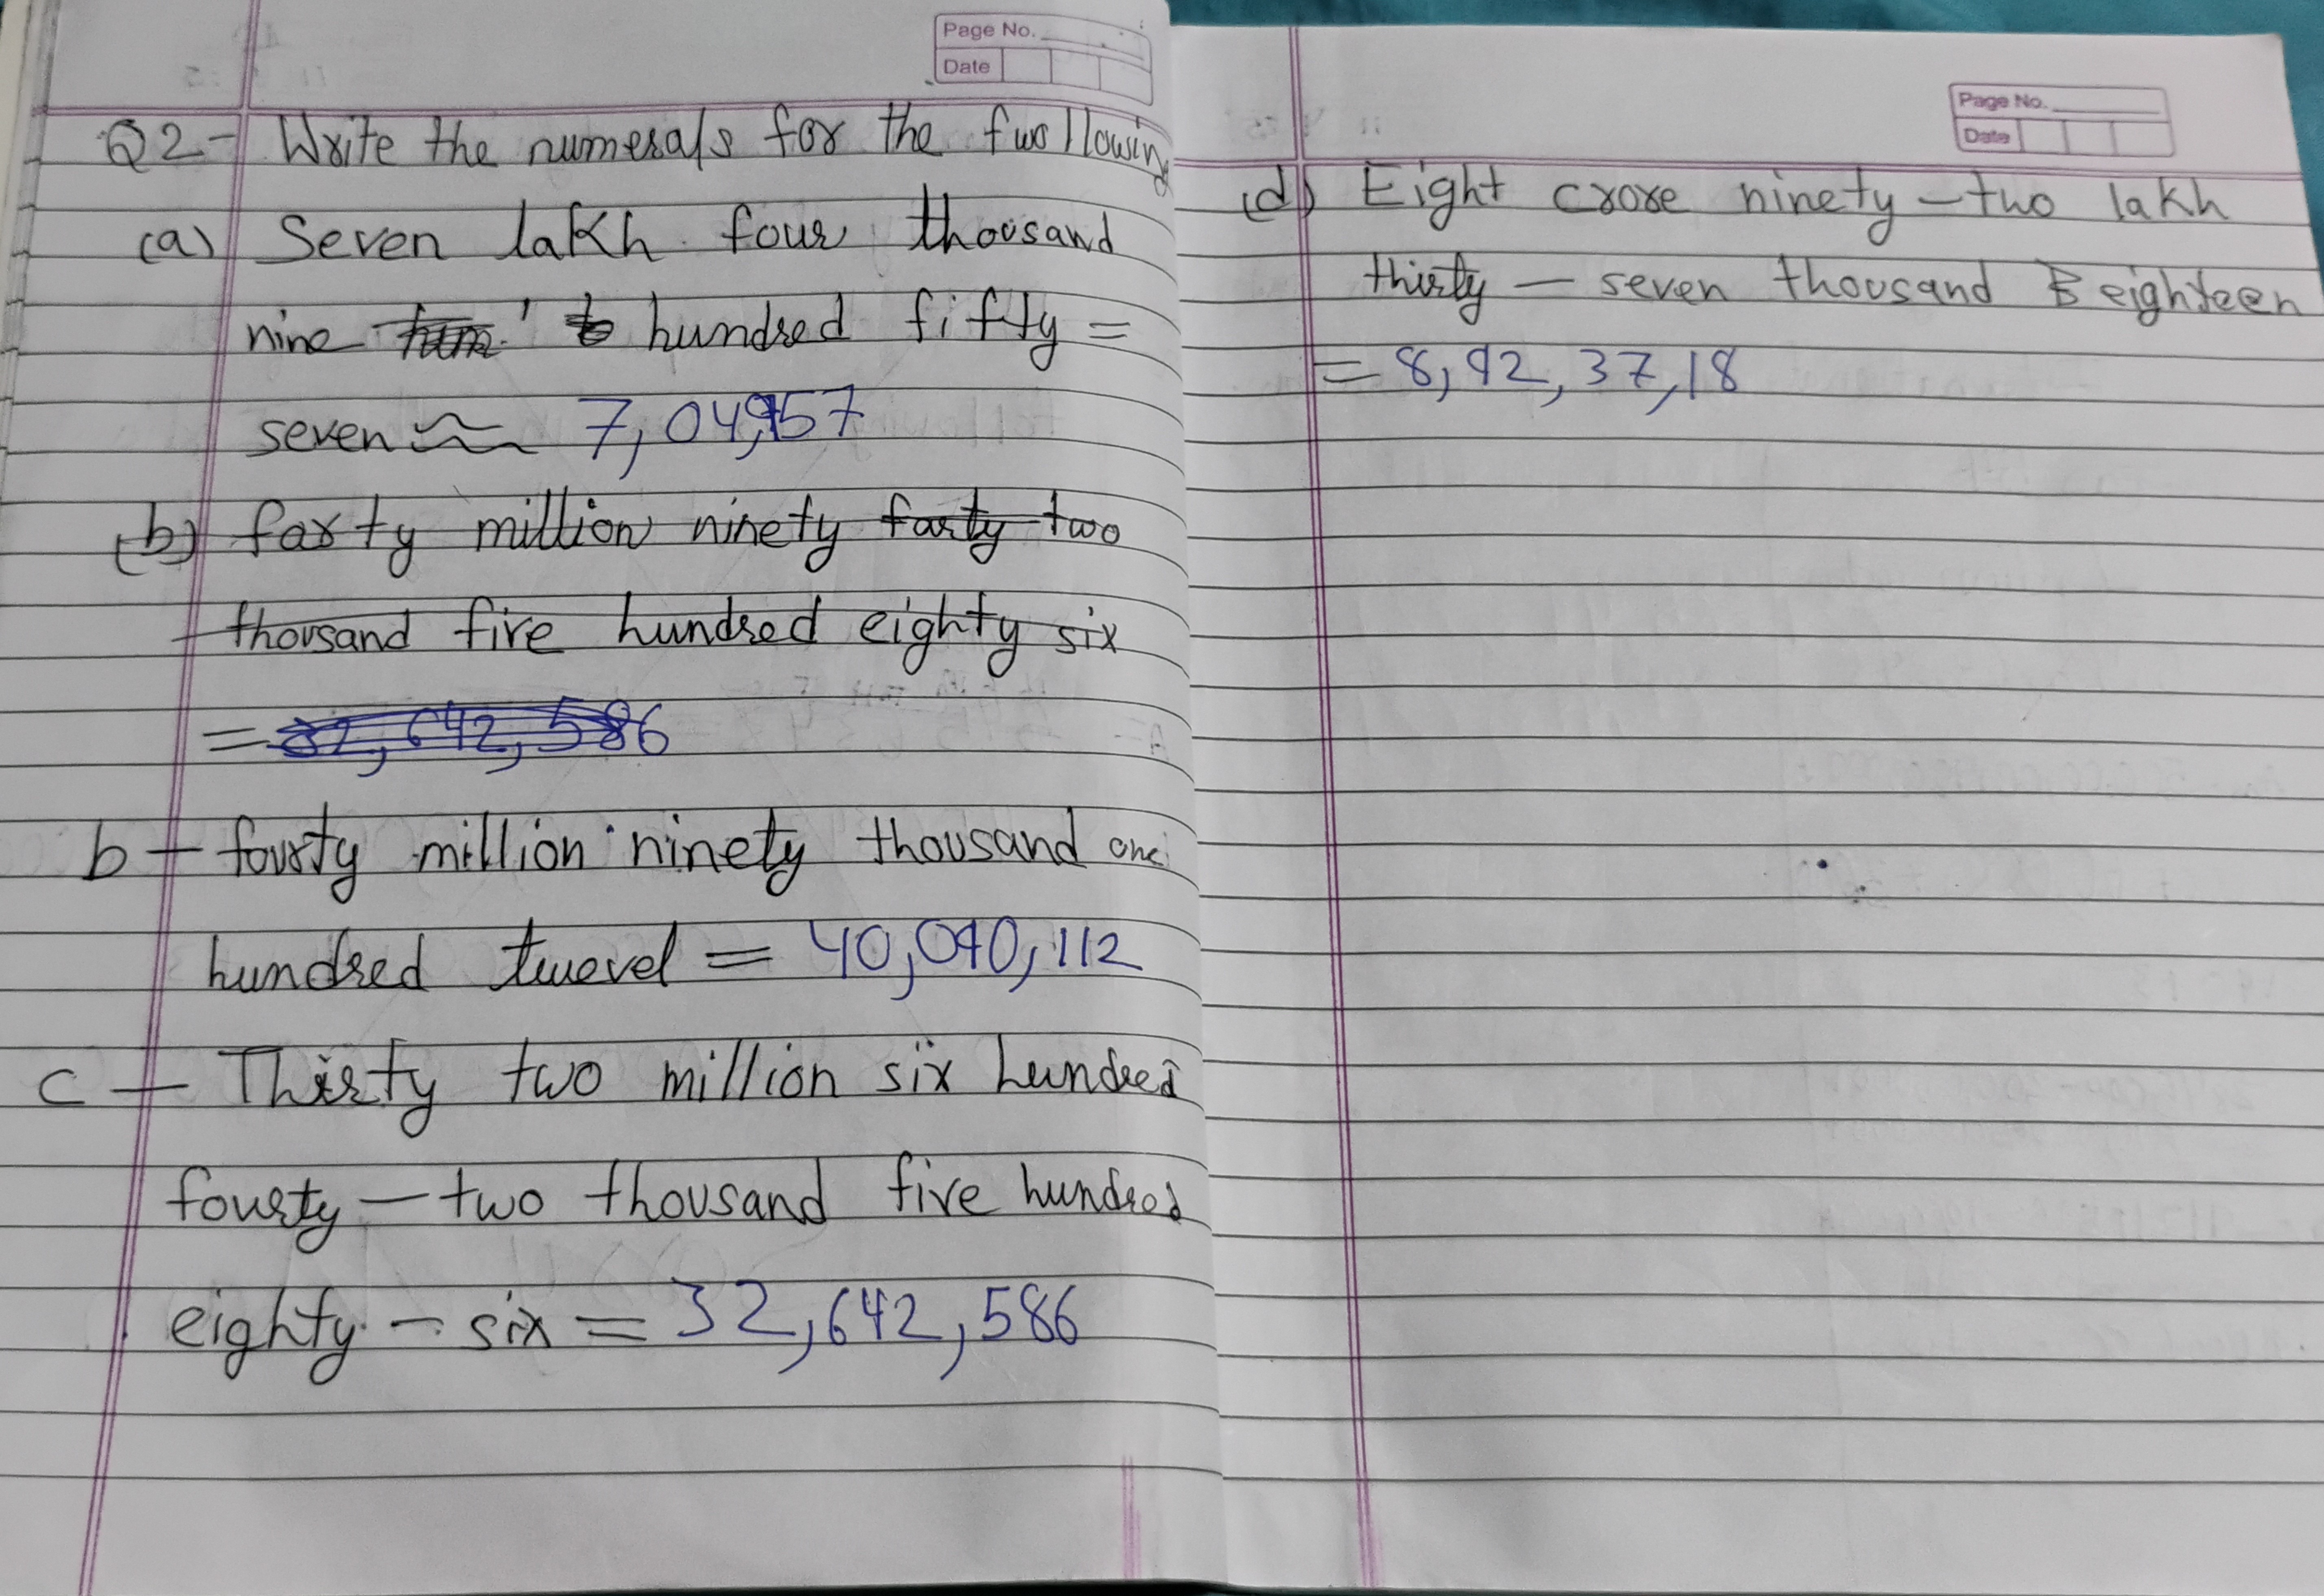 Page No.
Date
Q2- Write the numerals for the fwollowing
(a) Seven lakh four thoosand
nine hundred fifty =
seven 7,04,957
(b) farty million ninety farty two
thousand five hundred eighty six
= 32,642,586
b - fourty million ninety thousand one
hundred twevel = 40,090,112
c - Thirty two million six hundred
fourty - two thousand five hundred
eighty - six = 32,642,586
Page No.
Date
(d) Eight crore ninety - two lakh
thirty - seven thousand eighteen
= 8,92,37,18